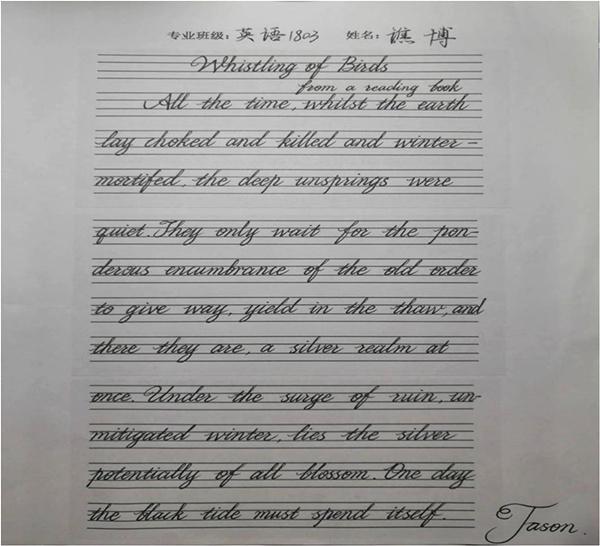 专业班级：英语1803 姓名：譙博
Whistling of Birds
from a reading book
All the time, whilst the earth
lay choked and killed and winter-
mortifed, the deep unsprings were
quiet. They only wait for the pon-
derous encumbrance of the old order
to give way, yield in the thaw, and
there they are, a silver realm at
once. Under the surge of ruin, un-
mitigated winter, lies the silver
potentially of all blossom. One day
the black tide must spend itself.
Jason.